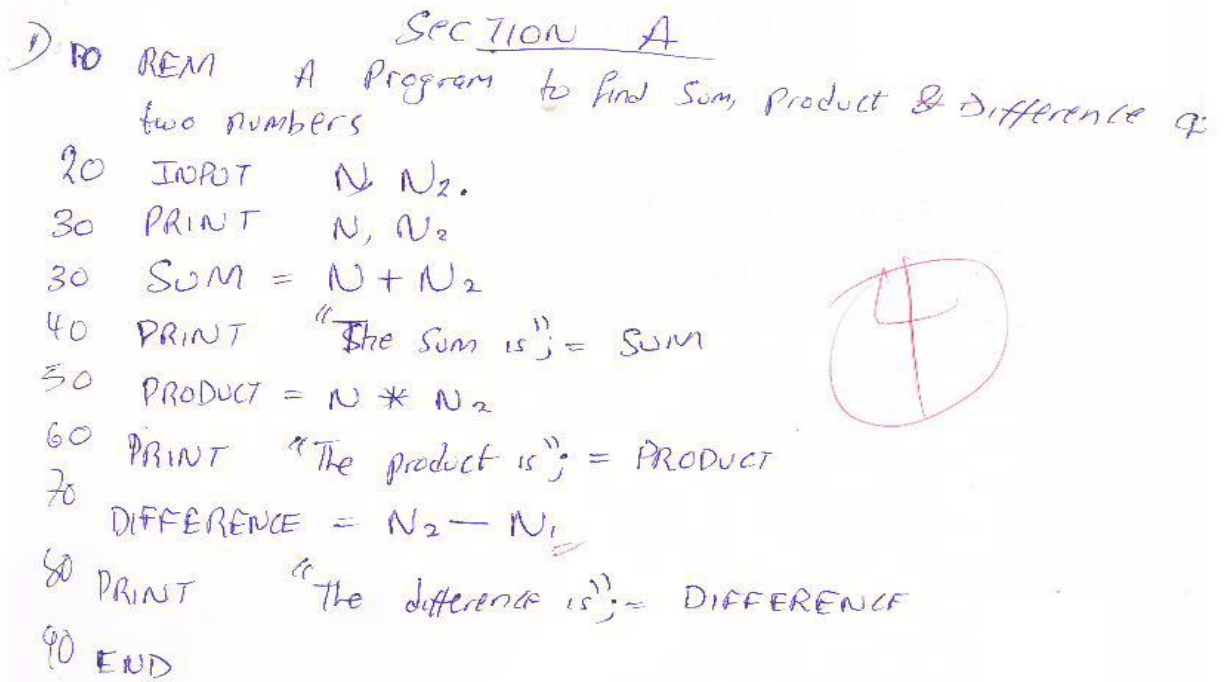 SECTION A
1) 10 REM A Program to find Sum, Product & Difference of
two numbers
20 INPUT N, N2.
30 PRINT N, N2
30 SUM = N + N2
40 PRINT "The Sum is"; = SUM
50 PRODUCT = N * N2
60 PRINT "The product is"; = PRODUCT
70
DIFFERENCE = N2 — N1
80 PRINT "The difference is"; = DIFFERENCE
90 END
4